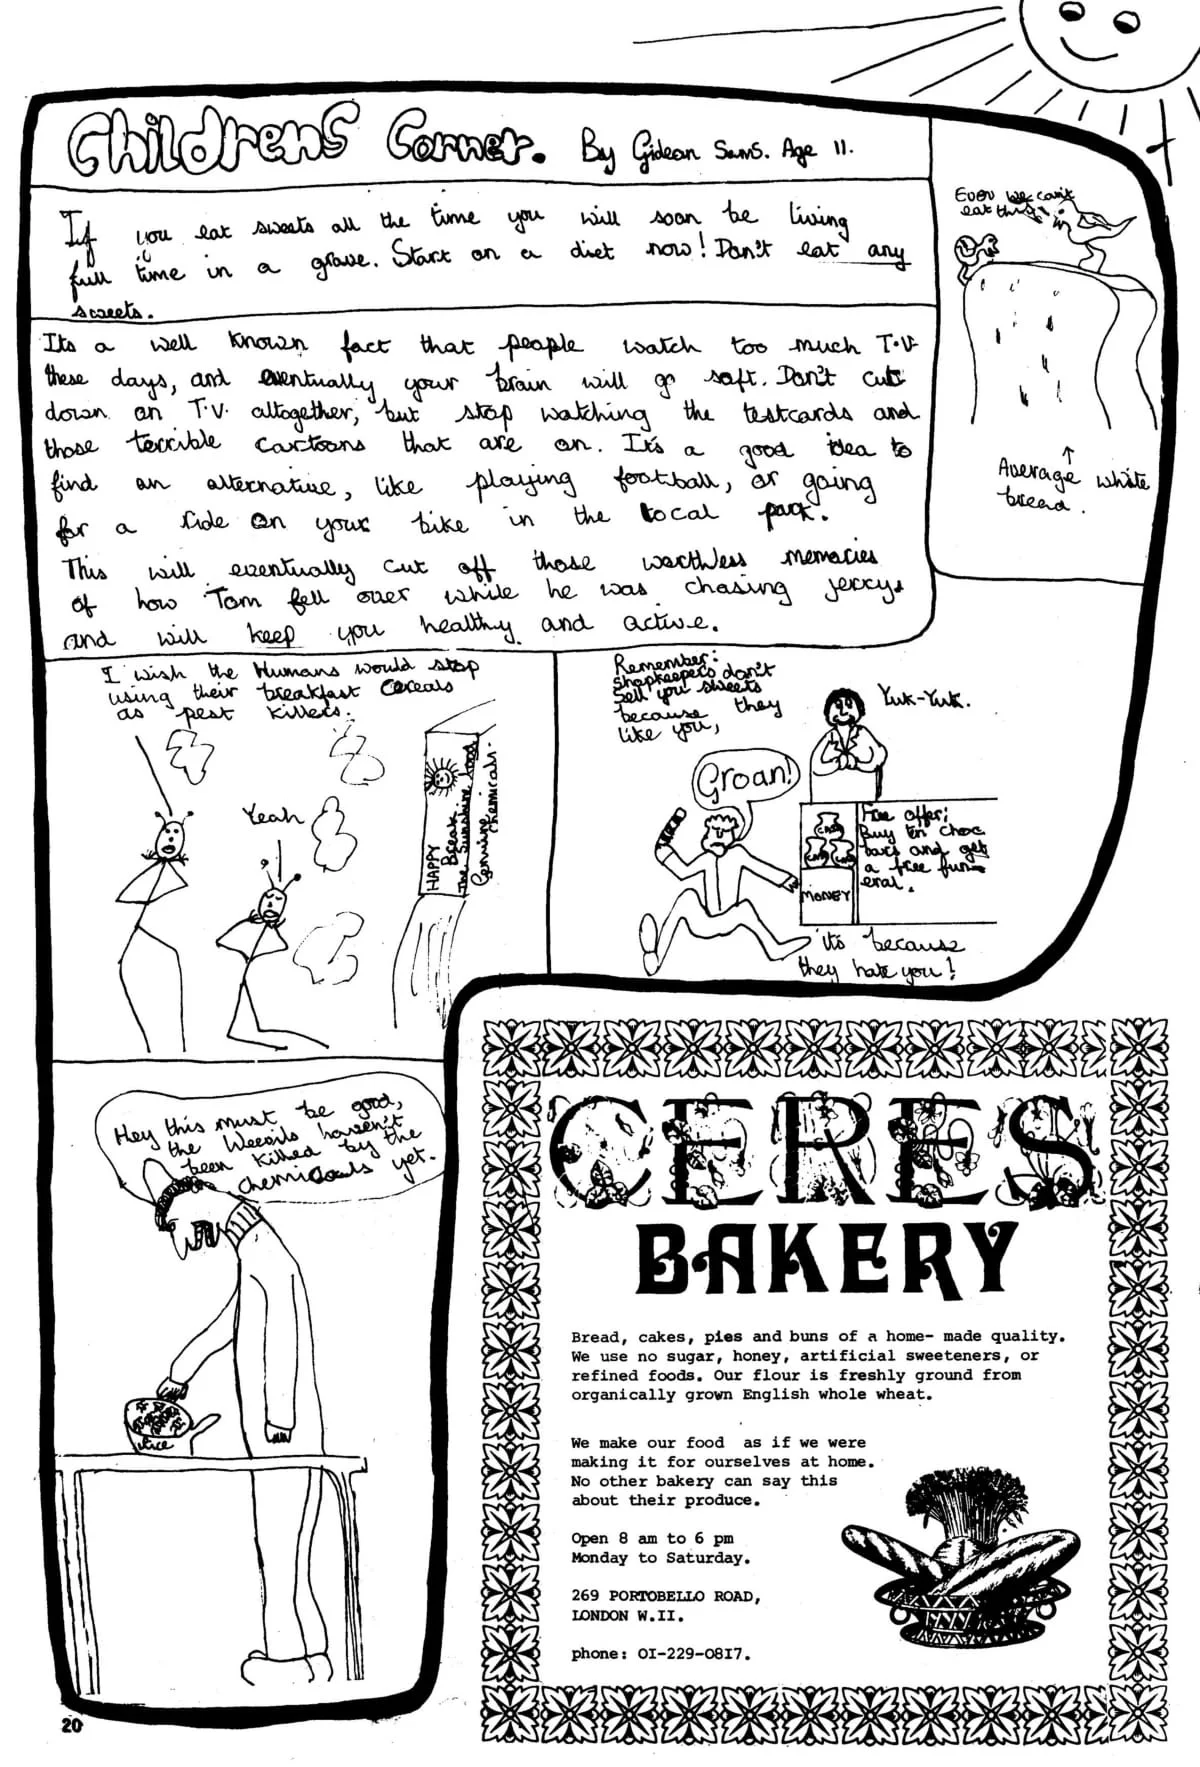 Childrens Corner. By Gideon Sams. Age 11.
If you eat sweets all the time you will soon be living
full time in a grave. Start on a diet now! Don't eat any
sweets.
Even we can't
eat this
Average white
bread.
Its a well known fact that people watch too much T.V
these days, and eventually your brain will go soft. Don't cut
down on T.V. altogether, but stop watching the testcards and
those terrible cartoons that are on. It's a good idea to
find an alternative, like playing football, or going
for a ride on your bike in the local park.
This will eventually cut off those worthless memories
of how Tom fell over while he was chasing jerry.
and will keep you healthy and active.
I wish the Humans would stop
using their breakfast Cereals
as pest killers.
Yeah
HAPPY
Break
The Sunshine food
Genuine
Chemicals.
Remember:
Shopkeepers don't
sell you sweets
because they
like you,
Yuk-Yuk.
Groan!
CASH
CASH
MONEY
Free offer;
Buy ten choc
bars and get
a free fun-
eral.
it's because
they hate you!
Hey this must be good,
the Weevils haven't
been killed by the
chemicals yet.
Rice
CERES
BAKERY
Bread, cakes, pies and buns of a home- made quality.
We use no sugar, honey, artificial sweeteners, or
refined foods. Our flour is freshly ground from
organically grown English whole wheat.
We make our food as if we were
making it for ourselves at home.
No other bakery can say this
about their produce.
Open 8 am to 6 pm
Monday to Saturday.
269 PORTOBELLO ROAD,
LONDON W.II.
phone: OI-229-O8I7.
20